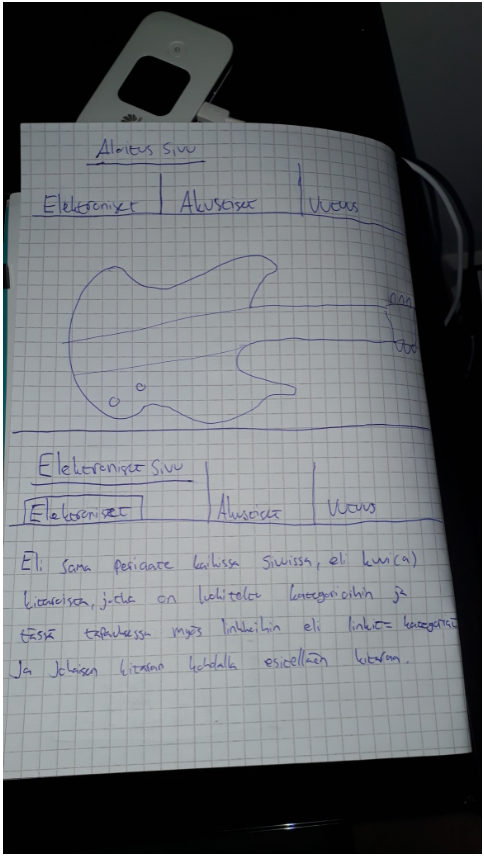 Aloitus Sivu
Elektroniset | Akustiset | Uutuus
Elektroniset Sivu
Elektroniset | Akustiset | Uutuus
Eli sama periaate kaikissa Sivuissa, eli kuv(a)
kitaroista, jotka on luokiteltu kategorioihin ja
tässä tapauksessa myös linkkeihin eli linkit= kategoriat
Ja jokaisen kitaran kohdalla esitellään kitaran.